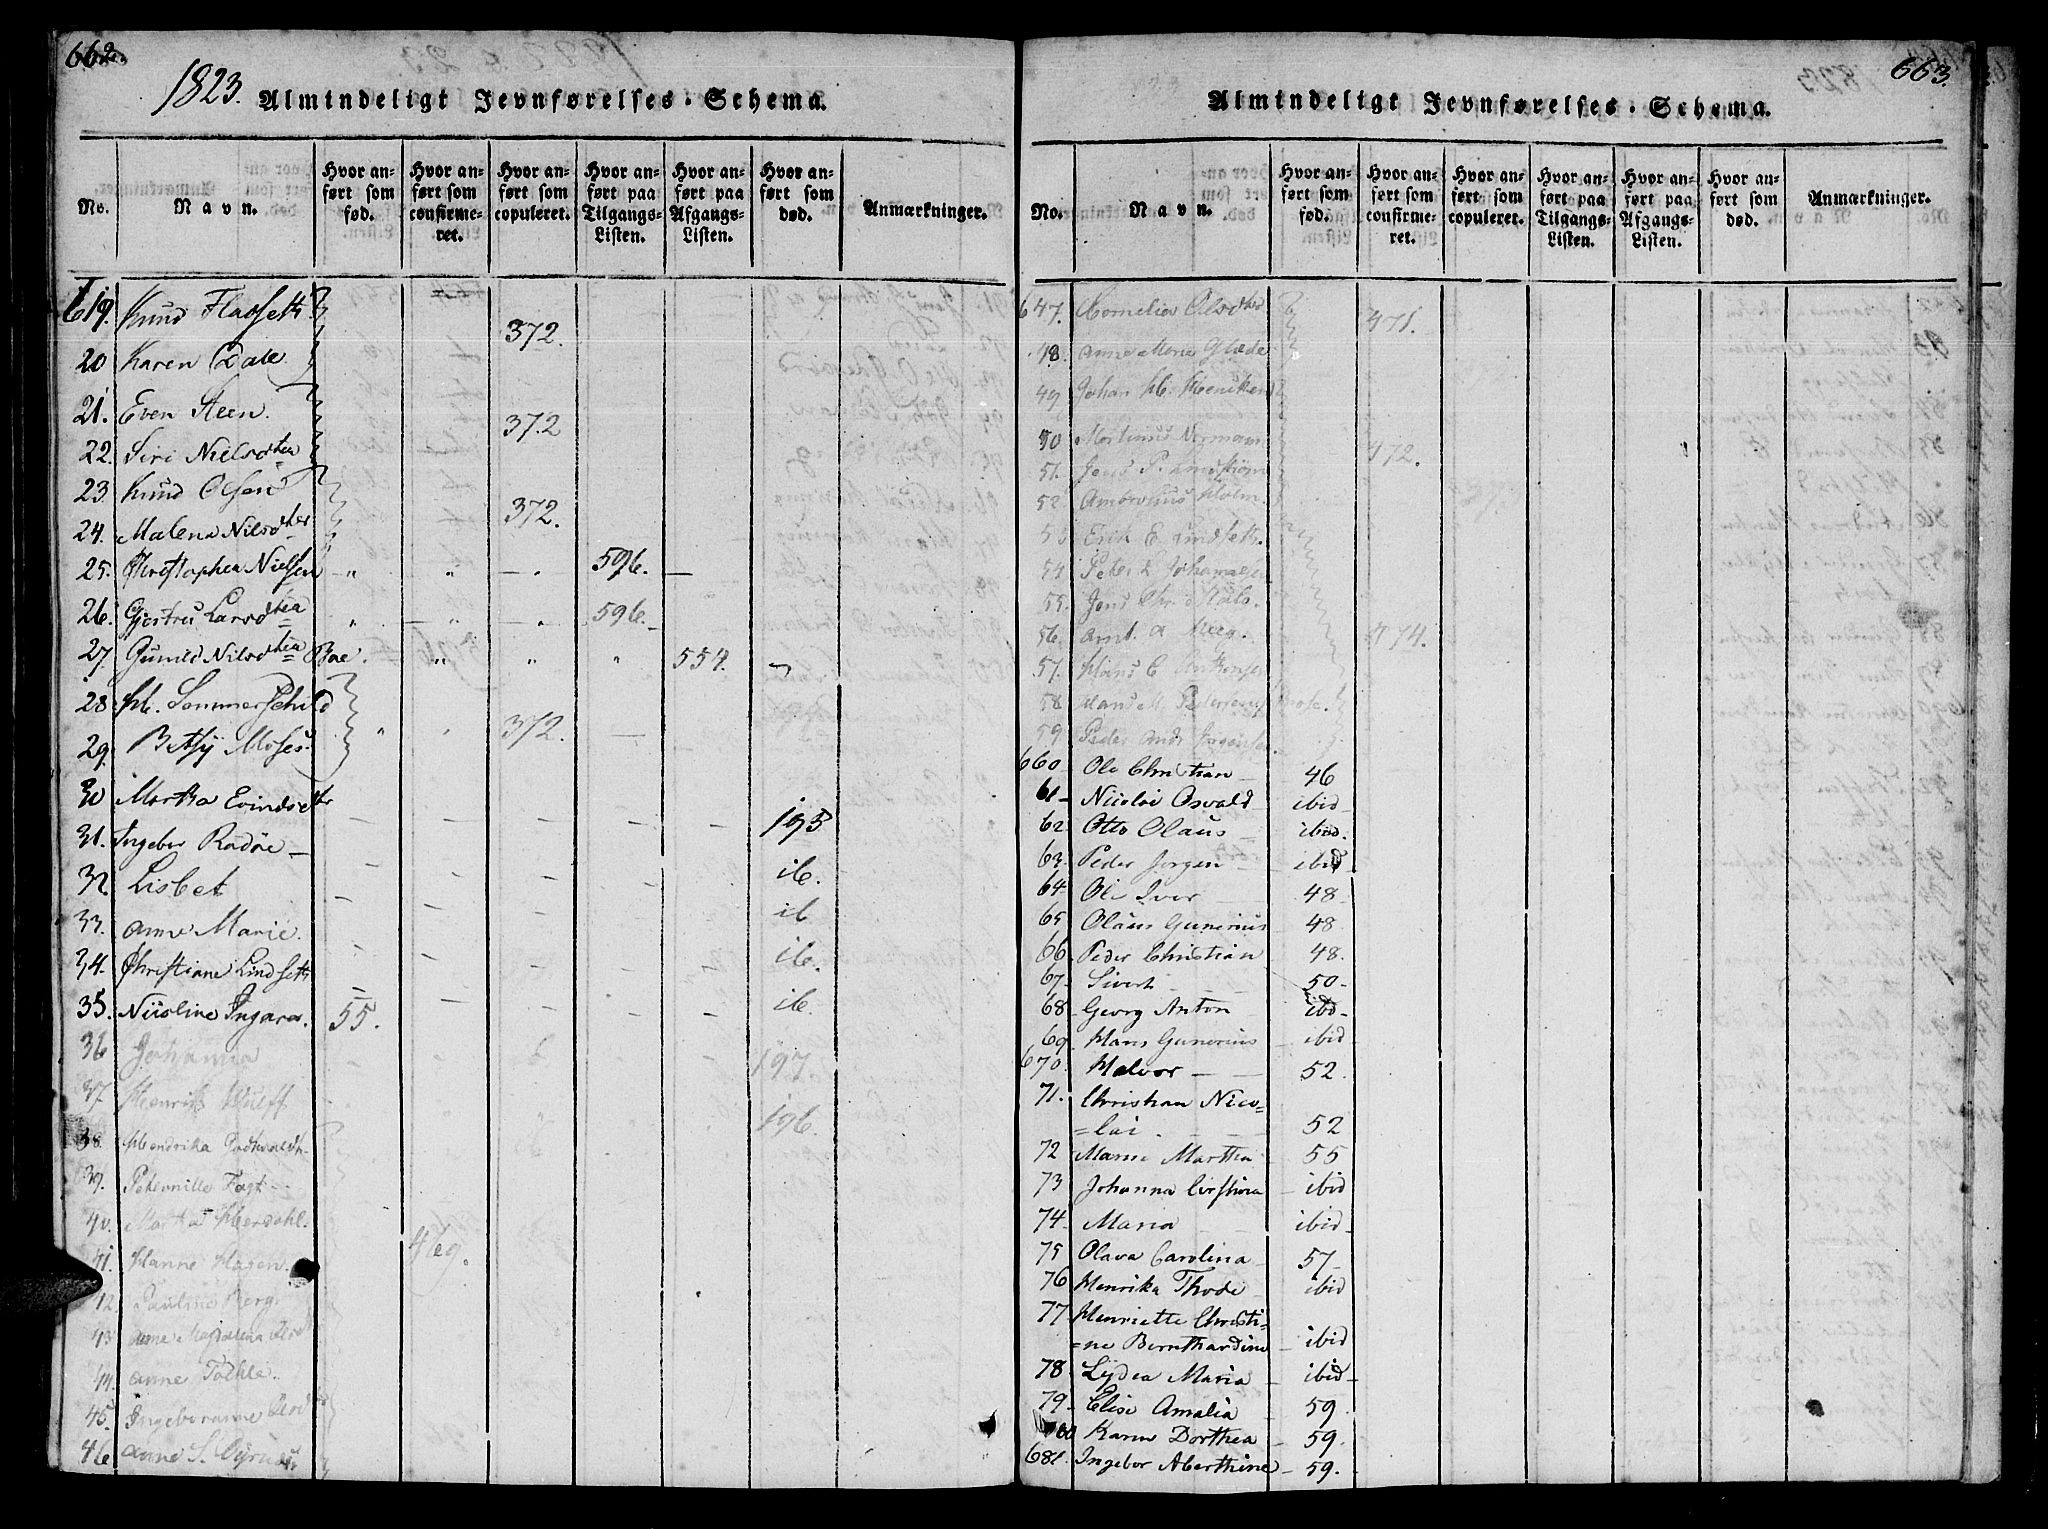 662
1823. Almindeligt Jevnførelses-Schema.
No. Navn. Hvor anført som fød. Hvor anført som confirmeret. Hvor anført som copuleret. Hvor anført paa Tilgangs-Listen. Hvor anført paa Afgangs-Listen. Hvor anført som død. Anmærkninger.
619. Knud Fladseth
372.
20 Karen Dale
21. Even Steen.
372
22. Siri Nielsdtea
23. Knud Olsen
372.
24. Malena Nilsdter
25. Christopher Nielsen 596.
26. Gjertru Larsdtea 596.
27. Gunild Nilsdtea Boe. 554.
28 H. Sommerschild
372.
29. Betsy Moses
30 Martha Evindsdtr
193
31. Ingebor Radøe
ib.
32. Lisbet
ib
33. Anne Marie.
ib.
34. Christiane Lindseth
ib.
35. Nicoline Ingara. 55.
36 Johanna
197.
37 Henrich Wulff
196.
38. Hendrika
39. Peternille Fogt
40. Martha
469.
41. Hanne Hagen.
42. Pauline Berg.
43 Anne Magdalena
44. Anne
45.
46 Anne S.
663.
Almindeligt Jevnførelses-Schema.
No. Navn. Hvor anført som fød. Hvor anført som confirmeret. Hvor anført som copuleret. Hvor anført paa Tilgangs-Listen. Hvor anført paa Afgangs-Listen. Hvor anført som død. Anmærkninger.
647. Cornelia Olsdter
471.
48. Anne Maria Glæde
49 Johan H.
50 Martinus Normann
472.
51. Jens P. Lindstrøm
52. Ambrosius Holm.
53 Erik E. Lindseth.
54 Peter L Johannesen
55. Jens Chr.
56. Arnt. A 474.
57. Hans C
58 Hans M. Pedersen
59 Peder And. Jørgensen.
660 Ole Christian 46
61 Nicolai Osvald ibid
62. Otto Olaus ibid.
63. Peder Jørgen ibid
64 Ole Iver 48
65 Olaus Gunerius 48
66 Peder Christian 48.
67. Sivert 50
68 Georg Anton ibid
69. Hans Gunerius ibid
670. Halvor 52.
71. Christian Nico=
=lai. 52
72 Marie Martha 55
73 Johanna ibid
74. Maria ibid
75 Olava Carolina 57
76 Henrika Thode ibid
77 Henriette Christi=
=ne Bernthardine ibid
78 Lydia Maria ibid
79. Elise Amalia 59
80 Karen Dorthea 59.
681. Ingebor Aberthine 59.